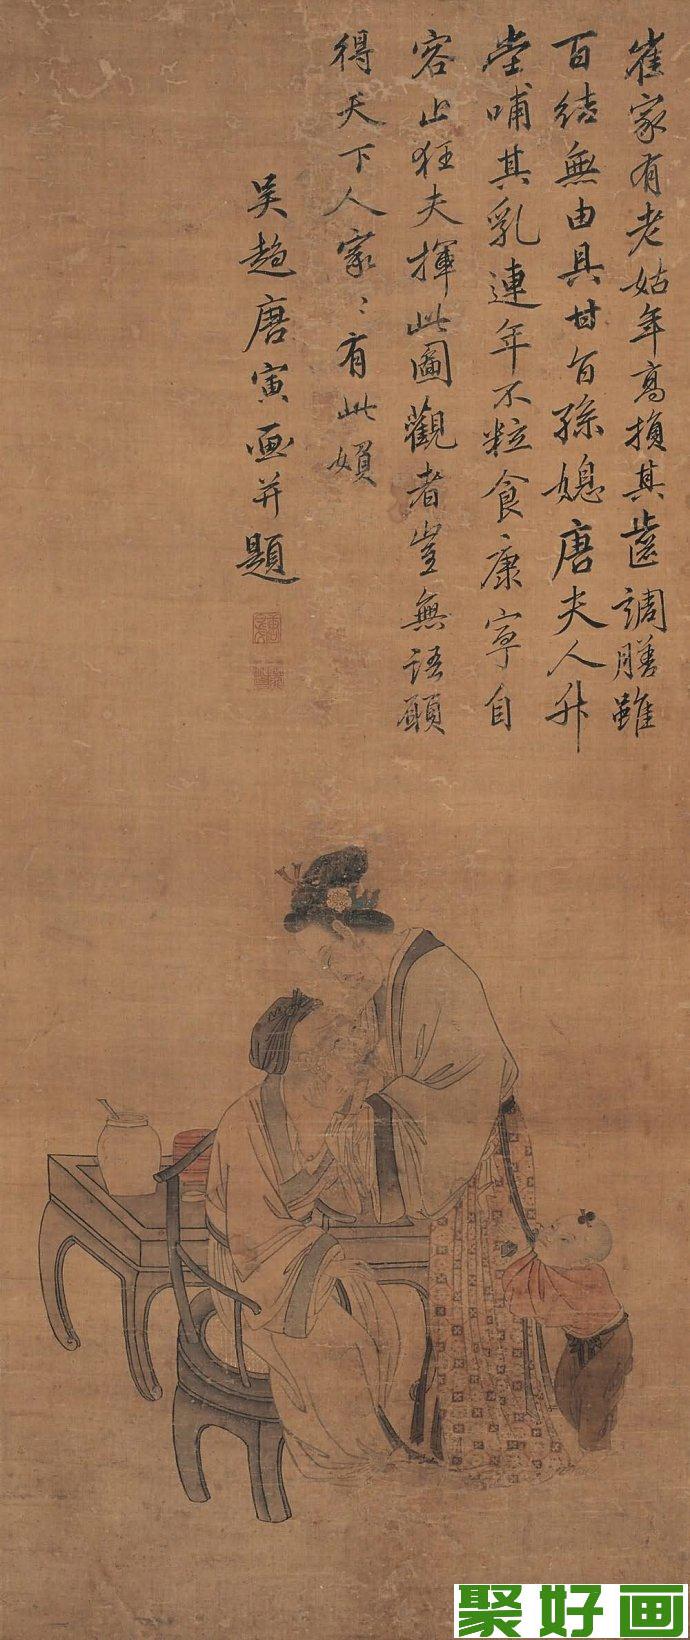 崔家有老姑年高損其齒調膳雖
百結無由具甘旨孫媳唐夫人升
堂哺其乳連年不粒食康寧自
容止狂夫揮此圖觀者豈無語願
得天下人家〻有此嬪
吳趨唐寅画并題
聚好画